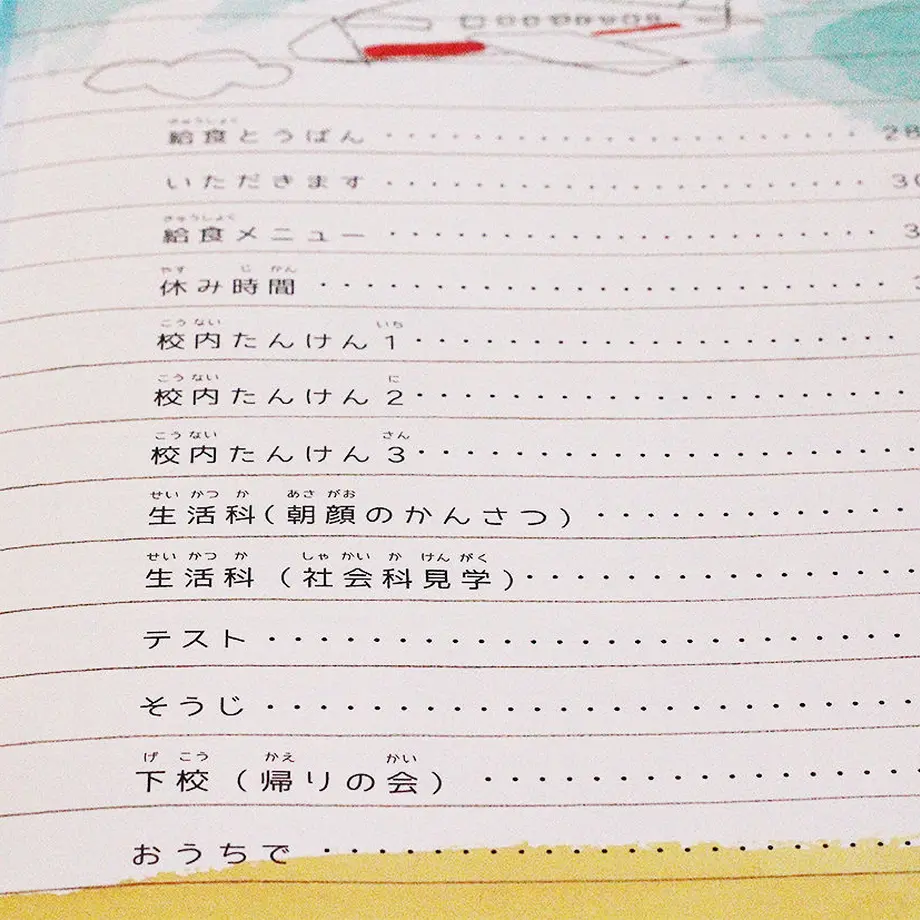 給食とうばん ・・・・・・・・・・・・・・・・・・・・ 28
いただきます ・・・・・・・・・・・・・・・・・・・・ 30
給食メニュー ・・・・・・・・・・・・・・・・・・・・ 3
休み時間 ・・・・・・・・・・・・・・・・・・・・
校内たんけん1 ・・・・・・・・・・・・・・・・・・・・
校内たんけん2 ・・・・・・・・・・・・・・・・・・・・
校内たんけん3 ・・・・・・・・・・・・・・・・・・・・
生活科(朝顔のかんさつ) ・・・・・・・・・・・・
生活科(社会科見学) ・・・・・・・・・・・・・・・
テスト ・・・・・・・・・・・・・・・・・・・・
そうじ ・・・・・・・・・・・・・・・・・・・・
下校(帰りの会) ・・・・・・・・・・・・・・・・
おうちで ・・・・・・・・・・・・・・・・・・・・